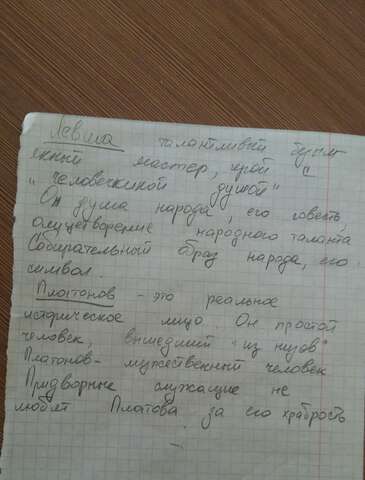 Левша талантливый буйм
енный мастер, герой с
"человеческой душой"
Он душа народа, его совесть,
олицетворение народного таланта
Собирательный образ народа, его
символ.
Платонов - это реальное
историческое лицо. Он простой
человек, вышедший "из низов"
Платонов - мужественный человек
Придворные служащие не
любят Платова за его храбрость